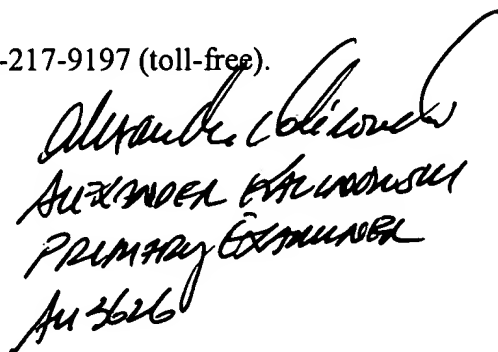 -217-9197 (toll-free).
Alexander Kalinowski
ALEXANDER KALINOWSKI
PRIMARY EXAMINER
AU 3626